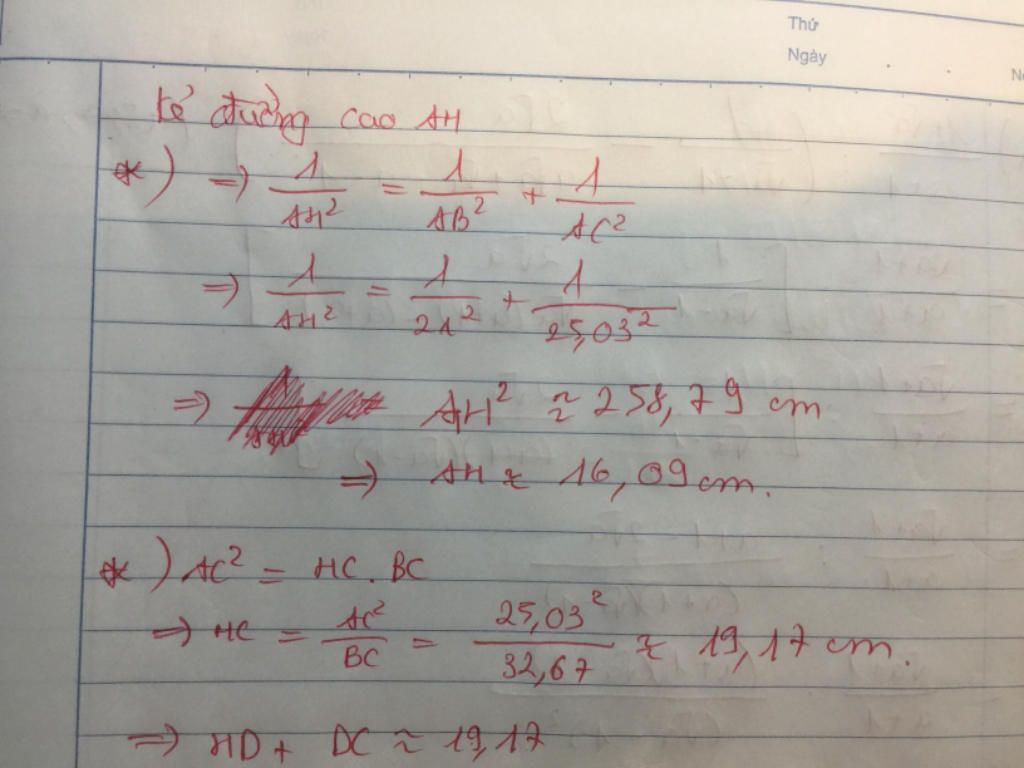 Thứ
Ngày
kẻ đường cao AH
*) => 1/AH² = 1/AB² + 1/AC²
=> 1/AH² = 1/21² + 1/25,03²
=> AH² ≈ 258,79 cm
=> AH ≈ 16,09 cm.
*) AC² = HC . BC
=> HC = AC²/BC = 25,03²/32,67 ≈ 19,17 cm.
=> HD + DC ≈ 19,17